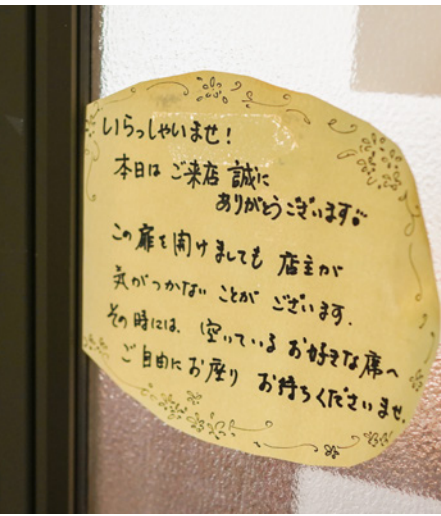 いらっしゃいませ!
本日は ご来店 誠に
ありがとうございます。
この扉を開けましても 店主が
気がつかない ことが ございます.
その時には、空いている お好きな席へ
ご自由にお座り お待ちくださいませ.